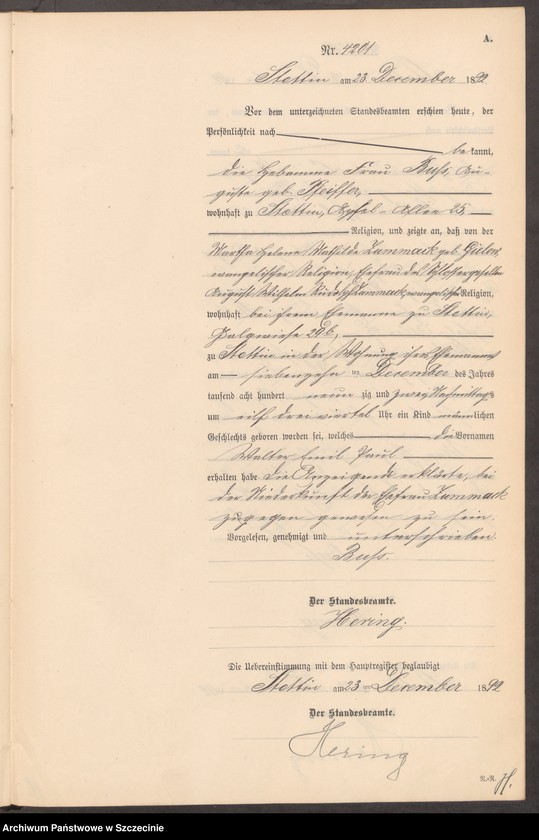 A.
Nr. 4201
Stettin am 23 December 1892
Vor dem unterzeichneten Standesbeamten erschien heute, der
Persönlichkeit nach
bekannt,
die Hebamme Frau Buss, Au-
guste geb. Pfeiffer,
wohnhaft zu Stettin, Apfel-Allee 25,
Religion, und zeigte an, daß von der
Martha Helene Mathilde Lammack geb.
evangelischer Religion, Ehefrau des Schlossergesellen
August Wilhelm Rudolf Lammack, evangelischer Religion,
wohnhaft bei ihrem Ehemanne zu Stettin,
Galgwiese 29b,
zu Stettin in der Wohnung ihres Ehemannes
am siebenzehnten December des Jahres
tausend acht hundert neunzig und zwei Nachmittags
um elf drei viertel Uhr ein Kind männlichen
Geschlechts geboren worden sei, welches die Vornamen
Walter Emil Paul
erhalten habe. Die Anzeigende erklärte, bei
der Niederkunft der Ehefrau Lammack
zugegen gewesen zu sein.
Vorgelesen, genehmigt und unterschrieben
Buss.
Der Standesbeamte.
Hering.
Die Uebereinstimmung mit dem Hauptregister beglaubigt
Stettin am 23 ten December 1892
Der Standesbeamte.
Hering
N.-R. H.
Archiwum Państwowe w Szczecinie